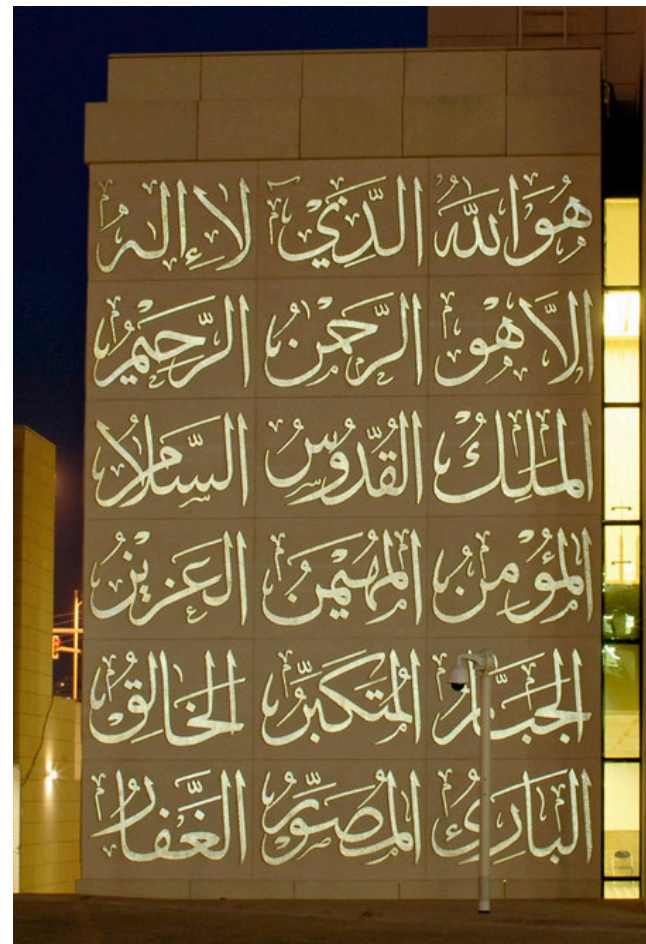 هُوَ اللهُ الَّذِيٓ لَا إِلٰهَ
إِلَّا هُوَ الرَّحْمٰنُ الرَّحِيْمُ
المَلِكُ القُدُّوسُ السَّلَامُ
المُؤْمِنُ المُهَيْمِنُ العَزِيزُ
الجَبَّارُ المُتَكَبِّرُ الخَالِقُ
البَارِئُ المُصَوِّرُ الغَفَّارُ